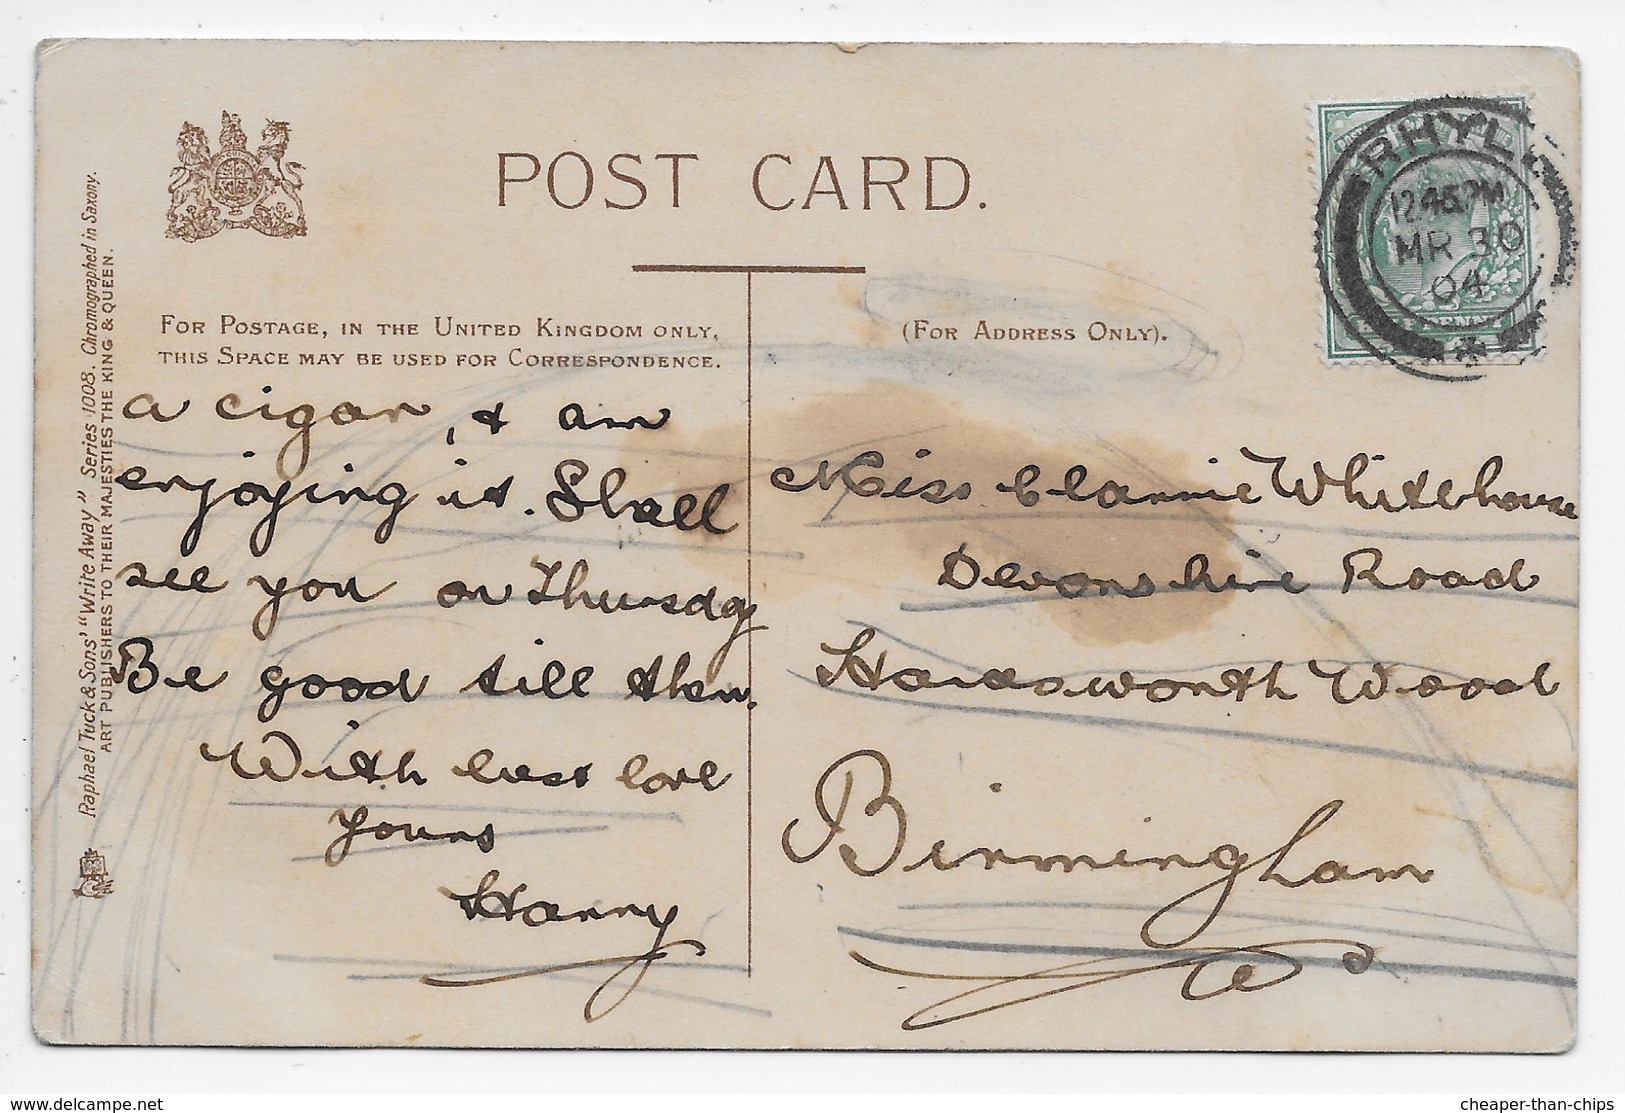 POST CARD.
RHYL
12.45 PM
MR 30
04
FOR POSTAGE, IN THE UNITED KINGDOM ONLY,
THIS SPACE MAY BE USED FOR CORRESPONDENCE.
(FOR ADDRESS ONLY).
Raphael Tuck & Sons' "Write Away" Series 1008. Chromographed in Saxony.
ART PUBLISHERS TO THEIR MAJESTIES THE KING & QUEEN.
a cigar, & am
enjoying it. Shall
see you on Thursday
Be good till then.
With best love
yours
Harry
Miss Clannie Whitehouse
Devonshire Road
Handsworth Wood
Birmingham
delcampe.net
cheaper-than-chips